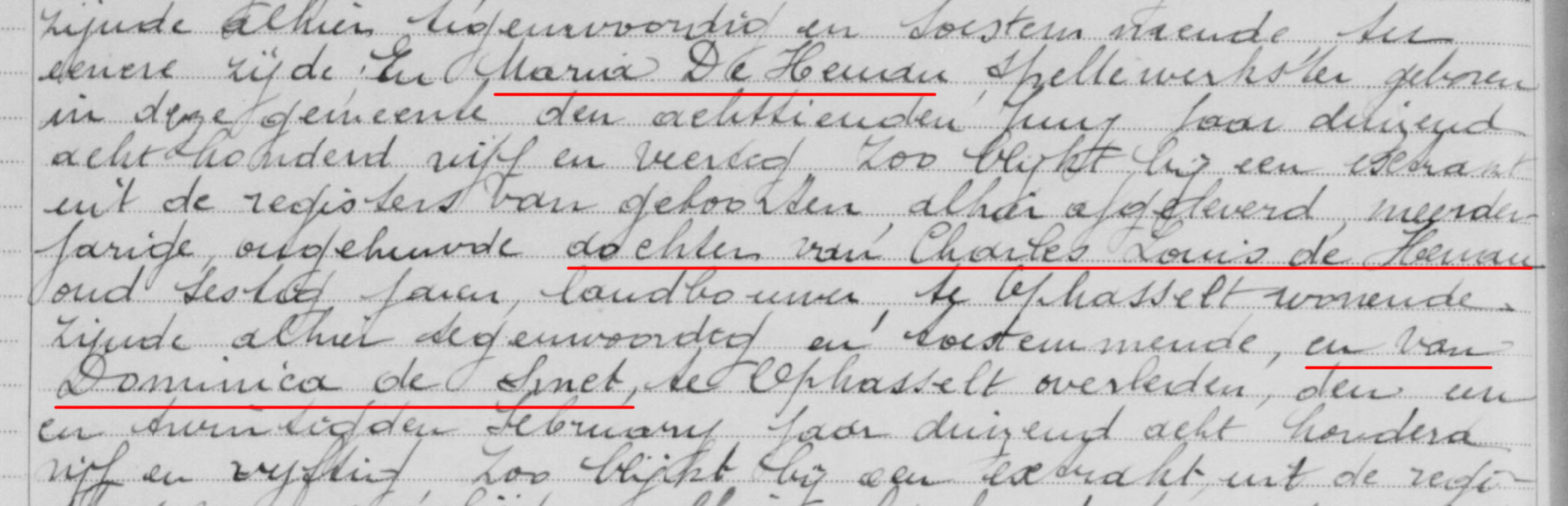 zijnde alhier tegenwoordig en toestemmende ter
eenere zijde, En Maria De Heman, spellewerkster geboren
in deze gemeente den achttienden juny jaar duizend
acht honderd vijf en veertig, zoo blijkt bij een extrakt
uit de registers van geboorten alhier afgeleverd, meerder-
jarige, ongehuwde dochter van Charles Louis de Heman
oud sestig jaren, landbouwer, te Ophasselt wonende
zijnde alhier tegenwoordig en toestemmende, en van
Dominica de Smet, te Ophasselt overleden, den een
en twintigsten february jaar duizend acht honderd
vijf en vyftig, zoo blijkt bij een extrakt uit de regi-